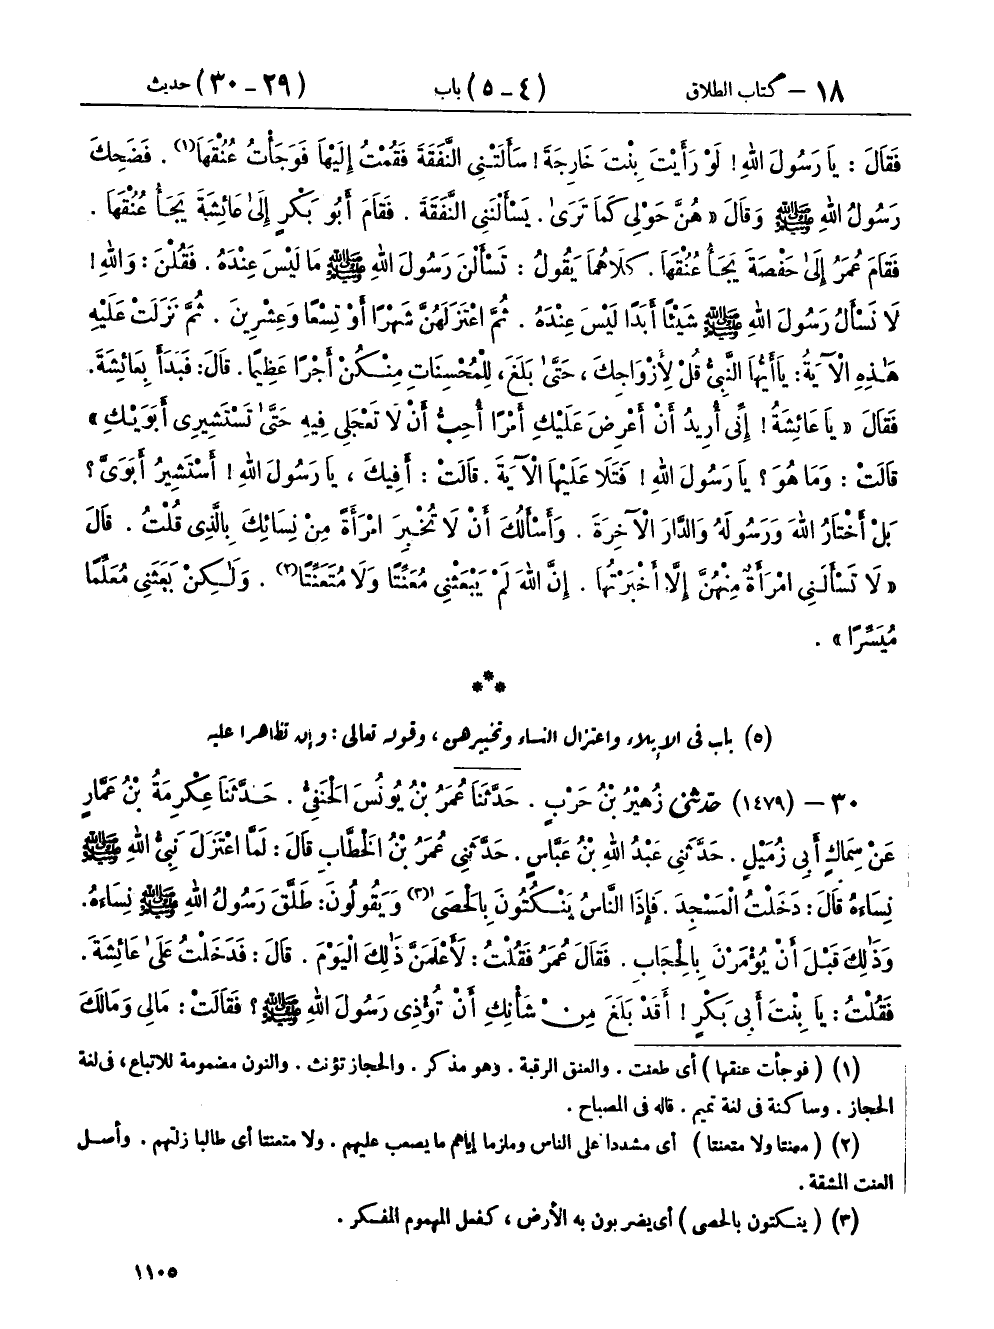 ١٨ – كتاب الطلاق (٤ – ٥) باب (٢٩ – ٣٠) حديث
فَقَالَ : يَا رَسُولَ اللهِ ! لَوْ رَأَيْتَ بِنْتَ خَارِجَةَ ! سَأَلَتْنِي النَّفَقَةَ فَقُمْتُ إِلَيْهَا فَوَجَأْتُ عُنُقَهَا(١) . فَضَحِكَ
رَسُولُ اللهِ ﷺ وَقَالَ « هُنَّ حَوْلِي كَمَا تَرَىٰ . يَسْأَلْنَنِي النَّفَقَةَ . فَقَامَ أَبُو بَكْرٍ إِلَىٰ عَائِشَةَ يَجَأُ عُنُقَهَا .
فَقَامَ عُمَرُ إِلَىٰ حَفْصَةَ يَجَأُ عُنُقَهَا . كِلَاهُمَا يَقُولُ : تَسْأَلْنَ رَسُولَ اللهِ ﷺ مَا لَيْسَ عِنْدَهُ . فَقُلْنَ : وَاللهِ !
لَا نَسْأَلُ رَسُولَ اللهِ ﷺ شَيْئًا أَبَدًا لَيْسَ عِنْدَهُ . ثُمَّ اعْتَزَلَهُنَّ شَهْرًا أَوْ تِسْعًا وَعِشْرِينَ . ثُمَّ نَزَلَتْ عَلَيْهِ
هَـٰذِهِ الْآيَةُ : يَا أَيُّهَا النَّبِيُّ قُلْ لِأَزْوَاجِكَ ، حَتَّىٰ بَلَغَ ، لِلْمُحْسِنَاتِ مِنْكُنَّ أَجْرًا عَظِيمًا . قَالَ : فَبَدَأَ بِعَائِشَةَ .
فَقَالَ « يَا عَائِشَةُ ! إِنِّي أُرِيدُ أَنْ أَعْرِضَ عَلَيْكِ أَمْرًا أُحِبُّ أَنْ لَا تَعْجَلِي فِيهِ حَتَّىٰ تَسْتَشِيرِي أَبَوَيْكِ »
قَالَتْ : وَمَا هُوَ ؟ يَا رَسُولَ اللهِ ! فَتَلَا عَلَيْهَا الْآيَةَ . قَالَتْ : أَفِيكَ ، يَا رَسُولَ اللهِ ! أَسْتَشِيرُ أَبَوَيَّ ؟
بَلْ أَخْتَارُ اللهَ وَرَسُولَهُ وَالدَّارَ الْآخِرَةَ . وَأَسْأَلُكَ أَنْ لَا تُخْبِرَ امْرَأَةً مِنْ نِسَائِكَ بِالَّذِي قُلْتُ . قَالَ
« لَا تَسْأَلُنِي امْرَأَةٌ مِنْهُنَّ إِلَّا أَخْبَرْتُهَا . إِنَّ اللهَ لَمْ يَبْعَثْنِي مُعَنِّتًا وَلَا مُتَعَنِّتًا(٢) . وَلَـٰكِنْ بَعَثَنِي مُعَلِّمًا
مُيَسِّرًا » .
***
(٥) باب في الإيلاء واعتزال النساء وتخييرهن ، وقوله تعالى : وإن تظاهرا عليه
٣٠ – (١٤٧٩) حدثني زُهَيْرُ بْنُ حَرْبٍ . حَدَّثَنَا عُمَرُ بْنُ يُونُسَ الْحَنَفِيُّ . حَدَّثَنَا عِكْرِمَةُ بْنُ عَمَّارٍ
عَنْ سِمَاكٍ أَبِي زُمَيْلٍ . حَدَّثَنِي عَبْدُ اللهِ بْنُ عَبَّاسٍ . حَدَّثَنِي عُمَرُ بْنُ الْخَطَّابِ قَالَ : لَمَّا اعْتَزَلَ نَبِيُّ اللهِ ﷺ
نِسَاءَهُ قَالَ : دَخَلْتُ الْمَسْجِدَ . فَإِذَا النَّاسُ يَنْكُتُونَ بِالْحَصَى(٣) وَيَقُولُونَ : طَلَّقَ رَسُولُ اللهِ ﷺ نِسَاءَهُ .
وَذَٰلِكَ قَبْلَ أَنْ يُؤْمَرْنَ بِالْحِجَابِ . فَقَالَ عُمَرُ فَقُلْتُ : لَأَعْلَمَنَّ ذَٰلِكَ الْيَوْمَ . قَالَ : فَدَخَلْتُ عَلَىٰ عَائِشَةَ .
فَقُلْتُ : يَا بِنْتَ أَبِي بَكْرٍ ! أَقَدْ بَلَغَ مِنْ شَأْنِكِ أَنْ تُؤْذِي رَسُولَ اللهِ ﷺ ؟ فَقَالَتْ : مَالِي وَمَالَكَ
(١) ( فوجأت عنقها ) أى طعنت . والعنق الرقبة . وهو مذكر . والحجاز تؤنث . والنون مضمومة للاتباع ، فى لغة
الحجاز . وساكنة فى لغة تميم . قاله فى المصباح .
(٢) ( معنتا ولا متعنتا ) أى مشددا على الناس وملزما إياهم ما يصعب عليهم . ولا متعنتا أى طالبا زلتهم . وأصل
العنت المشقة .
(٣) ( ينكتون بالحصى ) أى يضربون به الأرض ، كفعل المهموم المفكر .
١١٠٥